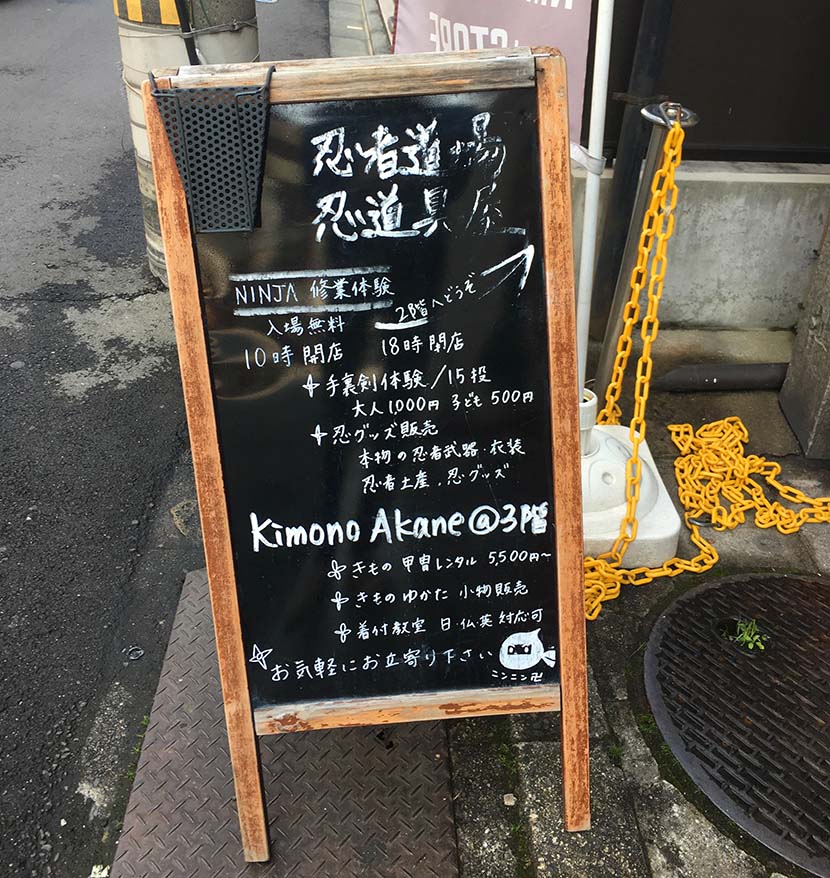 STORE
忍者道場
忍道具屋
NINJA 修業体験
2階へどうぞ
入場無料
10時開店 18時閉店
手裏剣体験/15投
大人1,000円 子ども500円
忍グッズ販売
本物の忍者武器・衣装
忍者土産、忍グッズ
Kimono Akane@3階
きもの 甲冑レンタル 5,500円~
きもの ゆかた 小物販売
着付教室 日・仏・英 対応可
お気軽にお立寄り下さい
ニンニン卍